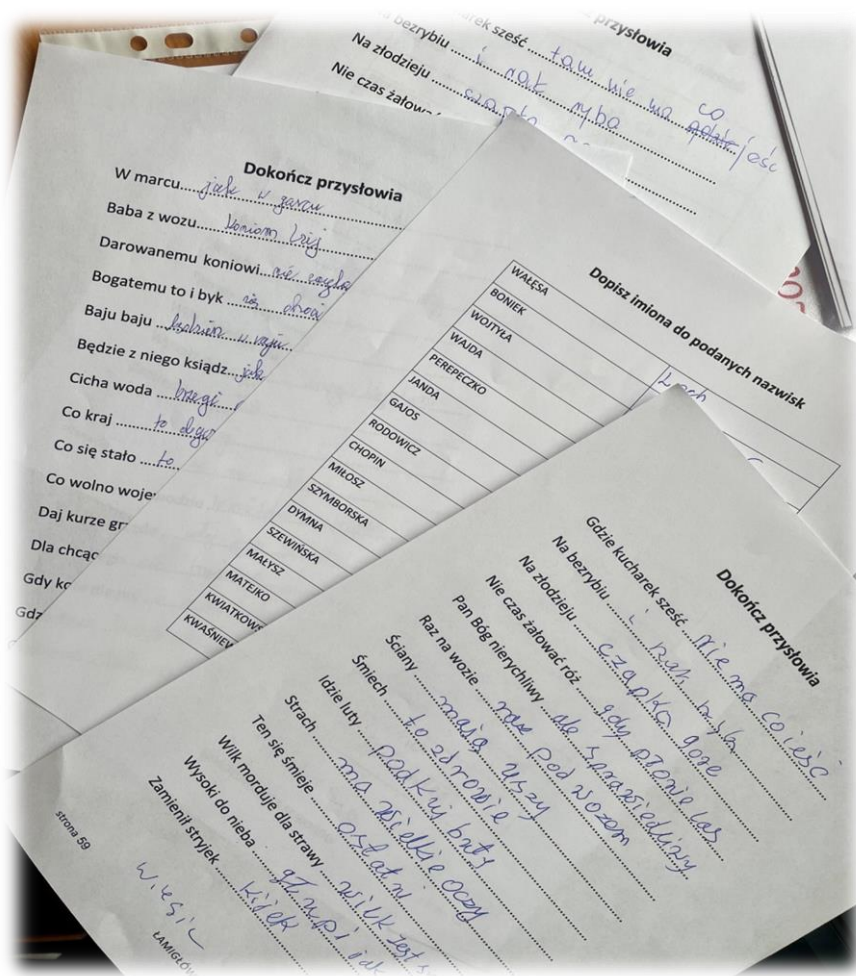 przysłowia
kucharek sześć tam nie ma co jeść
Na bezrybiu i rak ryba
Na złodzieju czapka
Nie czas żałow
Dokończ przysłowia
W marcu jak w garcu
Baba z wozu koniom lżij
Darowanemu koniowi nie
Bogatemu to i byk
Baju baju będzien w raju
Będzie z niego ksiądz jak
Cicha woda brzegi
Co kraj to
Co się stało to
Co wolno woje
Daj kurze gr
Dla chcąc
Gdy ko
Gdz
Dopisz imiona do podanych nazwisk
WAŁĘSA Lech
BONIEK
WOJTYŁA
WAJDA
PEREPECZKO
JANDA
GAJOS
RODOWICZ
CHOPIN
MIŁOSZ
SZYMBORSKA
DYMNA
SZEWIŃSKA
MAŁYSZ
MATEJKO
KWIATKOWS
KWAŚNIEW
Dokończ przysłowia
Gdzie kucharek sześć nie ma co ieść
Na bezrybiu i rak ryba
Na złodzieju czapka gore
Nie czas żałować róż gdy płonie las
Pan Bóg nierychliwy ale sprawiedliwy
Raz na wozie raz pod wozem
Ściany mają uszy
Śmiech to zdrowie
Idzie luty podkuj buty
Strach ma wielkie oczy
Ten się śmieje ostatni
Wilk morduje dla strawy wilk jest
Wysoki do nieba głupi jak
Zamienił stryjek kijek
strona 59
ŁAMIGŁÓW